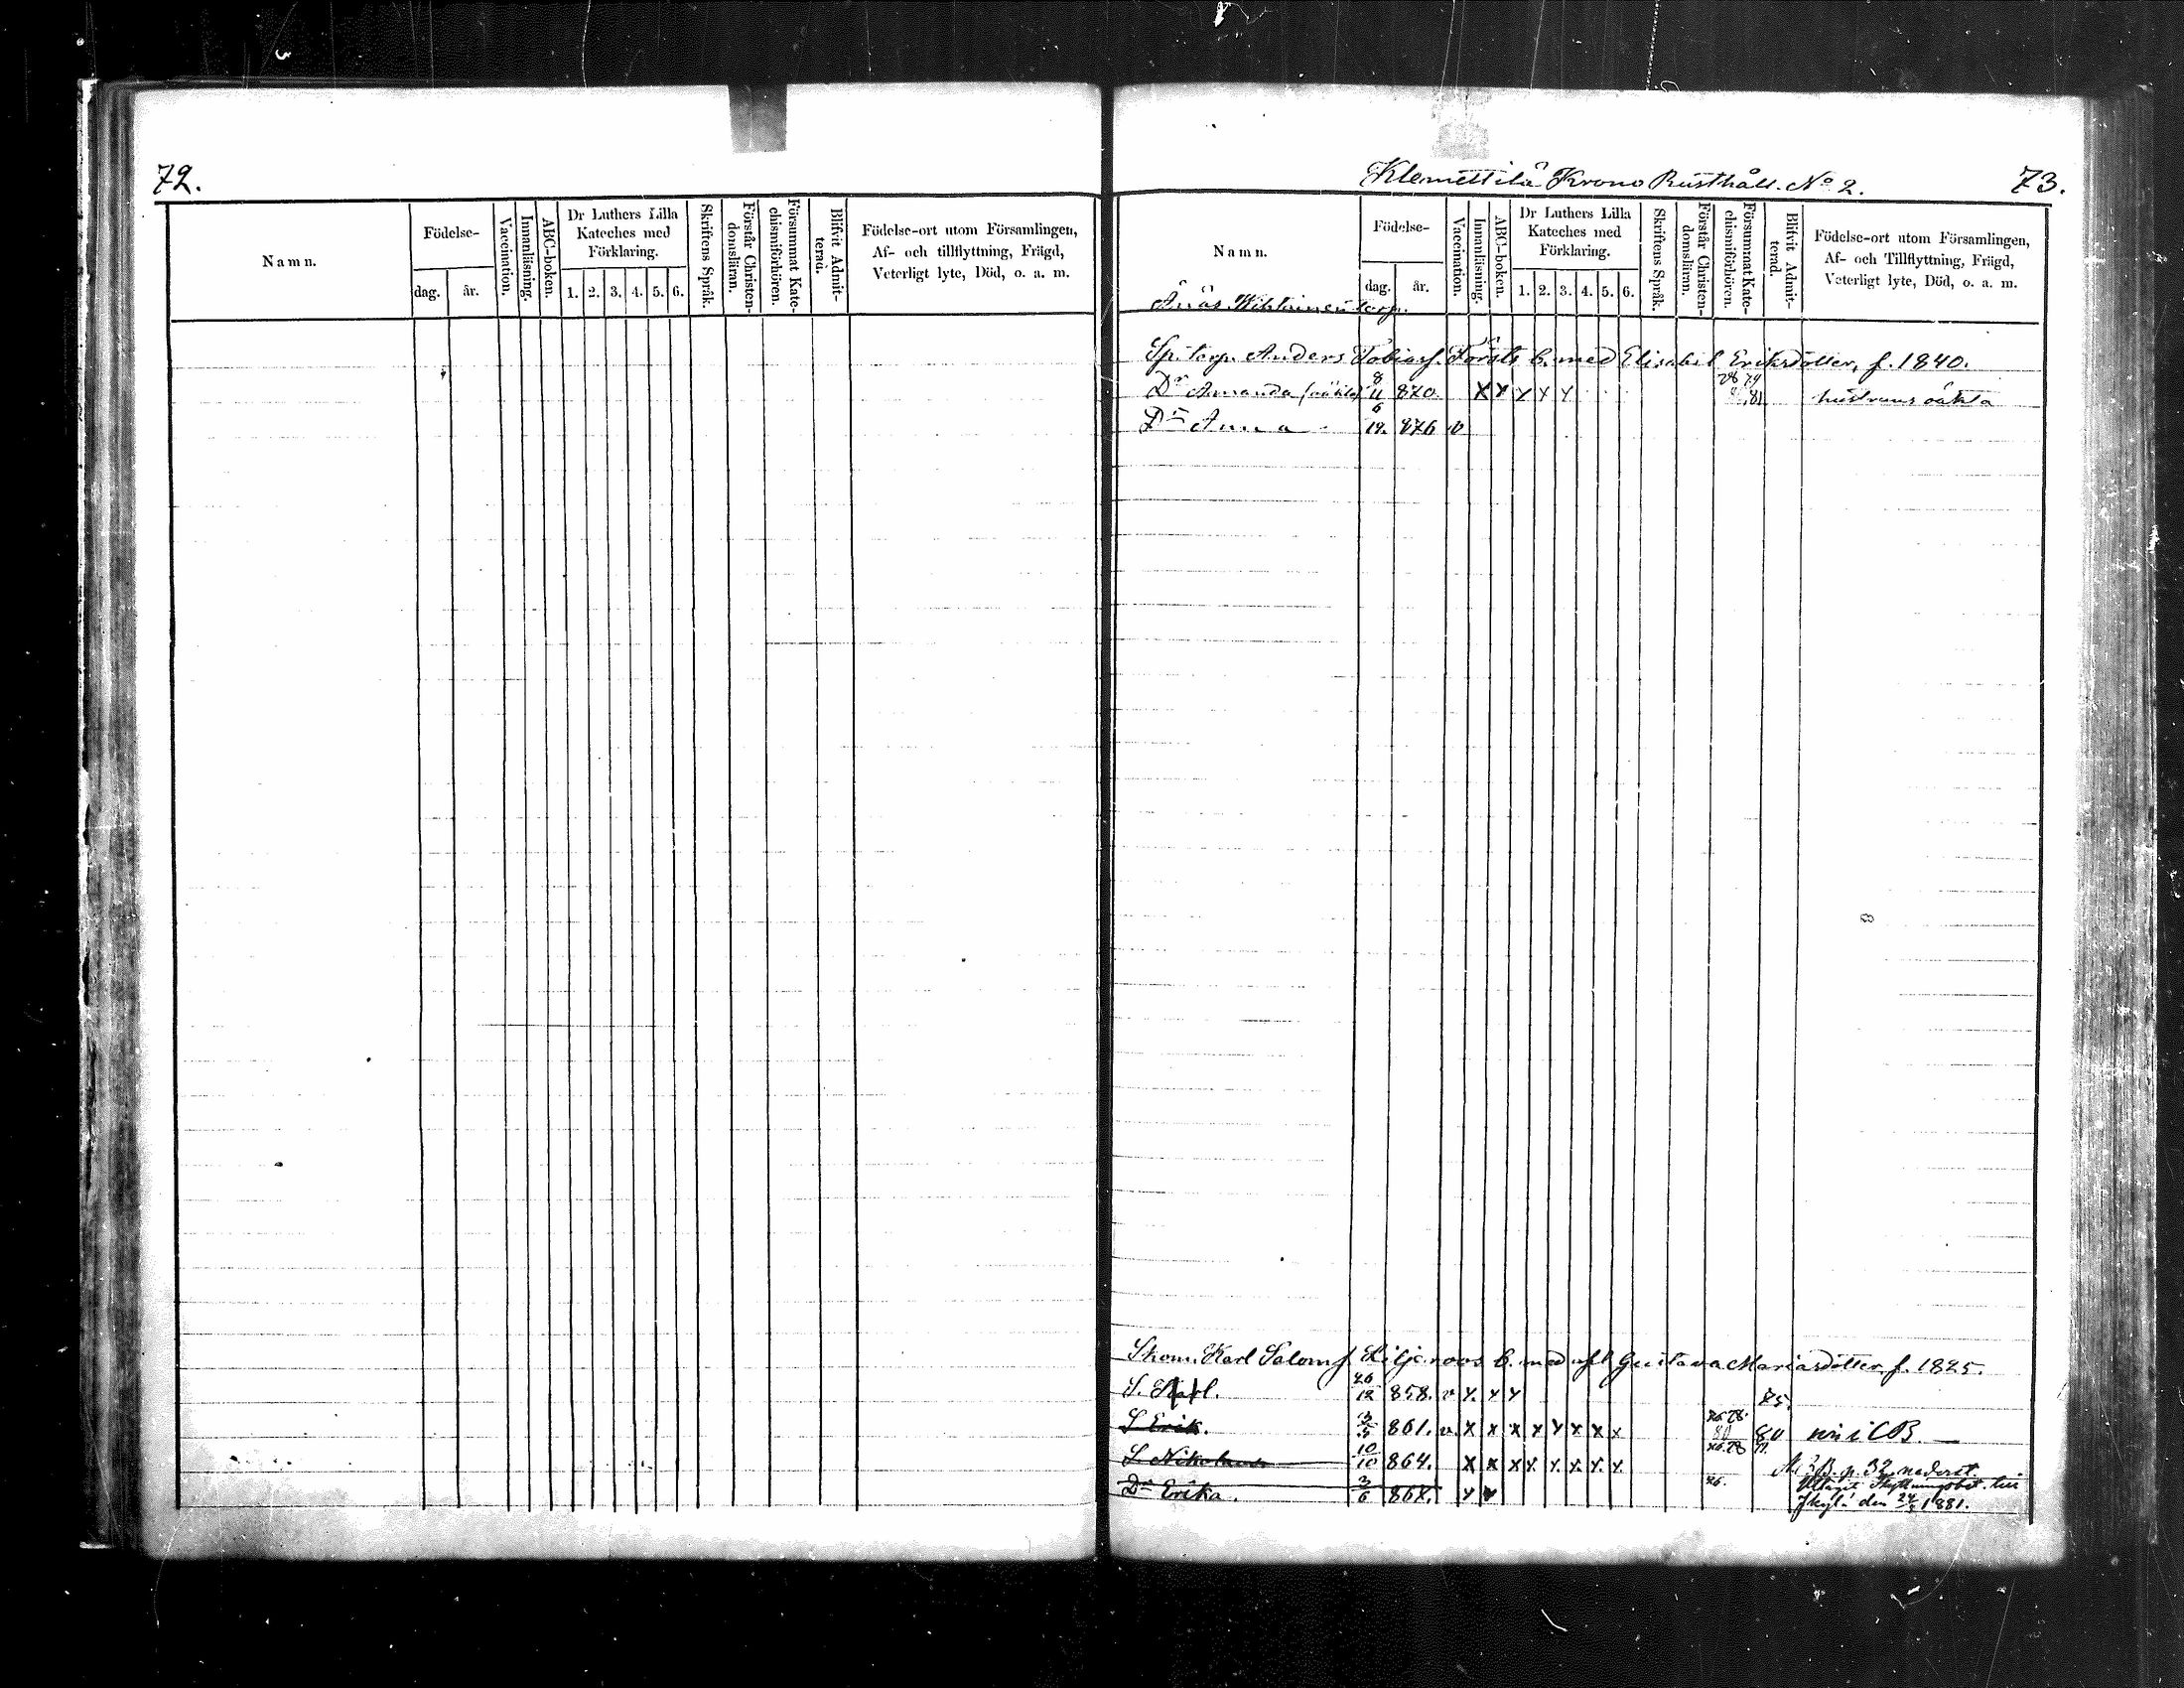 72.
Namn.
Födelse-
dag.
år.
Vaccination.
Innanläsning.
ABC-boken.
Dr Luthers Lilla
Kateches med
Förklaring.
1. 2. 3. 4. 5. 6.
Skriftens Språk.
Förstår Christen-
domsläran.
Försummat Kate-
chismiförhören.
Blifvit Admit-
terad.
Födelse-ort utom Församlingen,
Af- och tillflyttning, Frägd,
Veterligt lyte, Död, o. a. m.
Klemettilä Krono Rusthåll. No 2.
73.
Namn.
Födelse-
dag.
år.
Vaccination.
Innanläsning.
ABC-boken.
Dr Luthers Lilla
Kateches med
Förklaring.
1. 2. 3. 4. 5. 6.
Skriftens Språk.
Förstår Christen-
domsläran.
Försummat Kate-
chismiförhören.
Blifvit Admit-
terad.
Födelse-ort utom Församlingen,
Af- och Tillflyttning, Frägd,
Veterligt lyte, Död, o. a. m.
torp.
Sp. torp. Anders Tobiasf. b. med Elisabet Eriksdotter, f. 1840.
Dr Amanda (oäkta) 8/11 870. X X X X X 78 79 81 hustruns oäkta
Dr Anna 6/19. 876 v
Skom. Karl Salomsf. Liljeroos b. med Gustava Mariasdotter f. 1825.
S. Karl. 26/12 858. v X. X X 75.
S Erik. 3/5 861. v. X X X X X X X X 76 78. 80 80 i CB.
S. Nikolaus 10/10 864. X X X X. X. X. X. X 76. 78 M. B. p. 32 nederst.
Dr Erika. 3/6 867. X X 76. Uttagit flyttningsbet. till
den 24/3 1881.